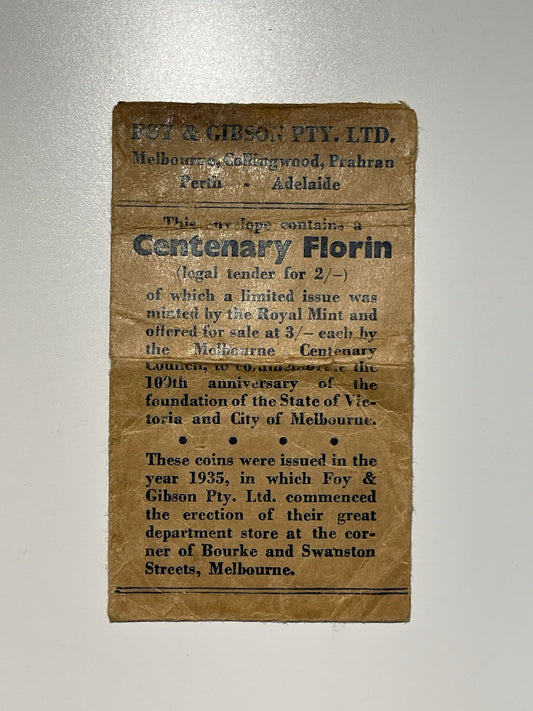 FOY & GIBSON PTY. LTD.
Melbourne, Collingwood, Prahran
Perth - Adelaide
This envelope contains a
Centenary Florin
(legal tender for 2/-)
of which a limited issue was
minted by the Royal Mint and
offered for sale at 3/- each by
the Melbourne Centenary
Council, to commemorate the
100th anniversary of the
foundation of the State of Vic-
toria and City of Melbourne.
• • • •
These coins were issued in the
year 1935, in which Foy &
Gibson Pty. Ltd. commenced
the erection of their great
department store at the cor-
ner of Bourke and Swanston
Streets, Melbourne.